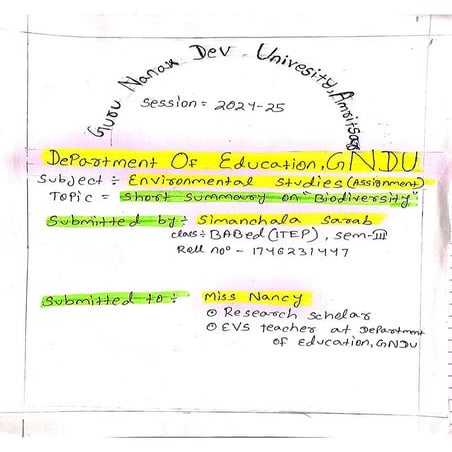 Guru Nanak Dev Univesity, Amritsar
Session = 2024-25
Department Of Education, GNDU
Subject ÷ Environmental Studies (Assignment)
Topic = Short Summary on "Biodiversity"
Submitted by ÷ Simanchala Sarab
class ÷ BABed (ITEP), Sem-III
Roll no° - 1746231447
Submitted to ÷ Miss Nancy
⊙ Research Scholar
⊙ EVS teacher at Department
of Education, GNDU